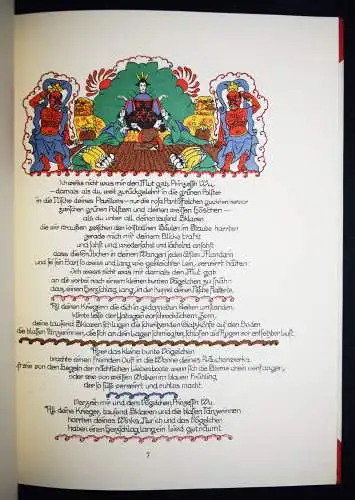 Ich weiss nicht was mir den Mut gab, Prinzessin Wu,
— damals als du, weit zurückgelehnt in die grünen Polster
in die Nische deines Pavillons — nur die rosa Pantöffelchen guckten hervor
zwischen grünen Polstern und deinen weissen Höschen —
als du unter all deinen tausend Sklaren
die wir draußen zwischen den kristallnen Säulen im Staube harrten
gerade mich mit deinem Blicke trafst
und sahst und wiedersahst und lächelnd ansahst
dass die Grübchen in deinen Wangen jeden ältsten Mandarin
und sei sein Bart so weiss und lang wie gebleichter Lein, verwirrt hätten:
Ich weiss nicht was mir damals den Mut gab
an dir vorbei nach einem kleinen bunten Vögelchen zu
dass, einen Herzschlag lang, in der Kuppel deiner Nische flatterte.
All deinen Kriegern die dich in gedoppelten Reihen umstanden,
klirrte leise der Yatagan vor schrecklichem Zorn,
deine tausend Sklaren schlugen die schreibenden Glatzköpfe auf den Boden
die blassen Tänzerinnen, die sich an dein Lager schmiegten, schlossen die Augen vor entsetzter Lust.
Aber das kleine bunte Vögelchen
brachte einen fremden Duft in die Wonne deines Räucherwerks:
von den Segeln der nächtlichen Liebesboote wenn sich die Sterne drein verfangen,
oder wie von weissen Wolken im blauen Frühling,
der so süss verwirrt und ruhlos macht.
Verzeih mir und dem Vögelchen, Prinzessin Wu.
All deine Krieger, tausend Sklaren und die blassen Tänzerinnen
harrten deines Winks. Nur ich und das Vögelchen
haben einen Herzschlag lang ein Lied geträumt.
7